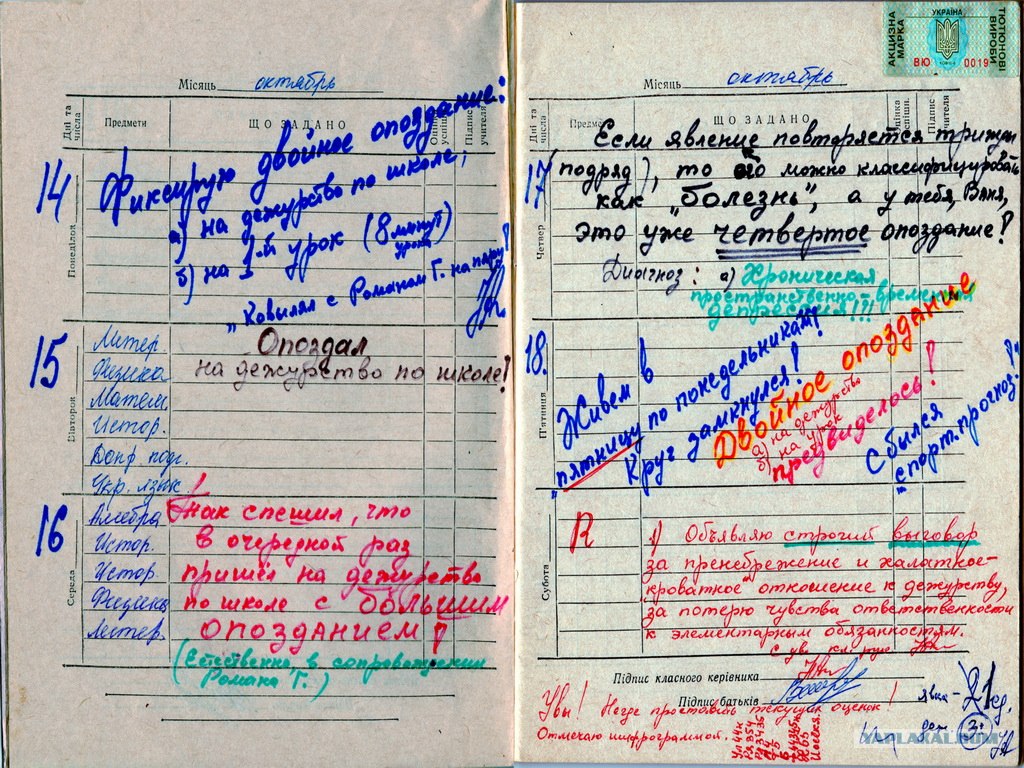 Місяць октябрь
Дні та числа
Предмети
ЩО ЗАДАНО
Підпис учителя
14
Понеділок
Фиксирую двойное опоздание:
а) на дежурство по школе;
б) на 1-й урок (8 минут урока)
"Ковылял с Романом Г. на пару!
15
Вівторок
Литер.
Физика
Матем.
Истор.
Вопр. подг.
Укр. язык
Опоздал
на дежурство по школе!
16
Середа
Алгебра
Истор.
Истор.
Физика
Литер.
Так спешил, что
в очередной раз
пришёл на дежурство
по школе с большим
опозданием!
(Естественно, в сопровождении
Романа Г.)
АКЦИЗНА МАРКА
УКРАЇНА
ТЮТЮНОВІ ВИРОБИ
ВЮ 0019
Місяць октябрь
Дні та числа
Предме
ЩО ЗАДАНО
цінка успішн.
Підпис учителя
17
Четвер
Если явление повторяется трижды
подряд), то его можно классифицировать
как "болезнь", а у тебя, Ваня,
это уже четвертое опоздание!
Диагноз: а) Хроническая
пространственно-временная
депрессия!!!
18.
П'ятниця
Живем в
"пятницу по понедельникам!
Круг замкнулся!
Двойное опоздание
а) на дежурство
б) на урок
предвиделось!
Сбылся
"спорт. прогноз!"
Субота
R
1) Объявляю строгий выговор
за пренебрежение и халатно-
кроватное отношение к дежурству,
за потерю чувства ответственности
к элементарным обязанностям.
С ув. кл. рук.
Підпис класного керівника
Підпис батьків
явка - 21 ед.
Увы! Негде проставить текущих оценок!
Отмечаю шифрограммой.
3
YAPLAKAL.COM